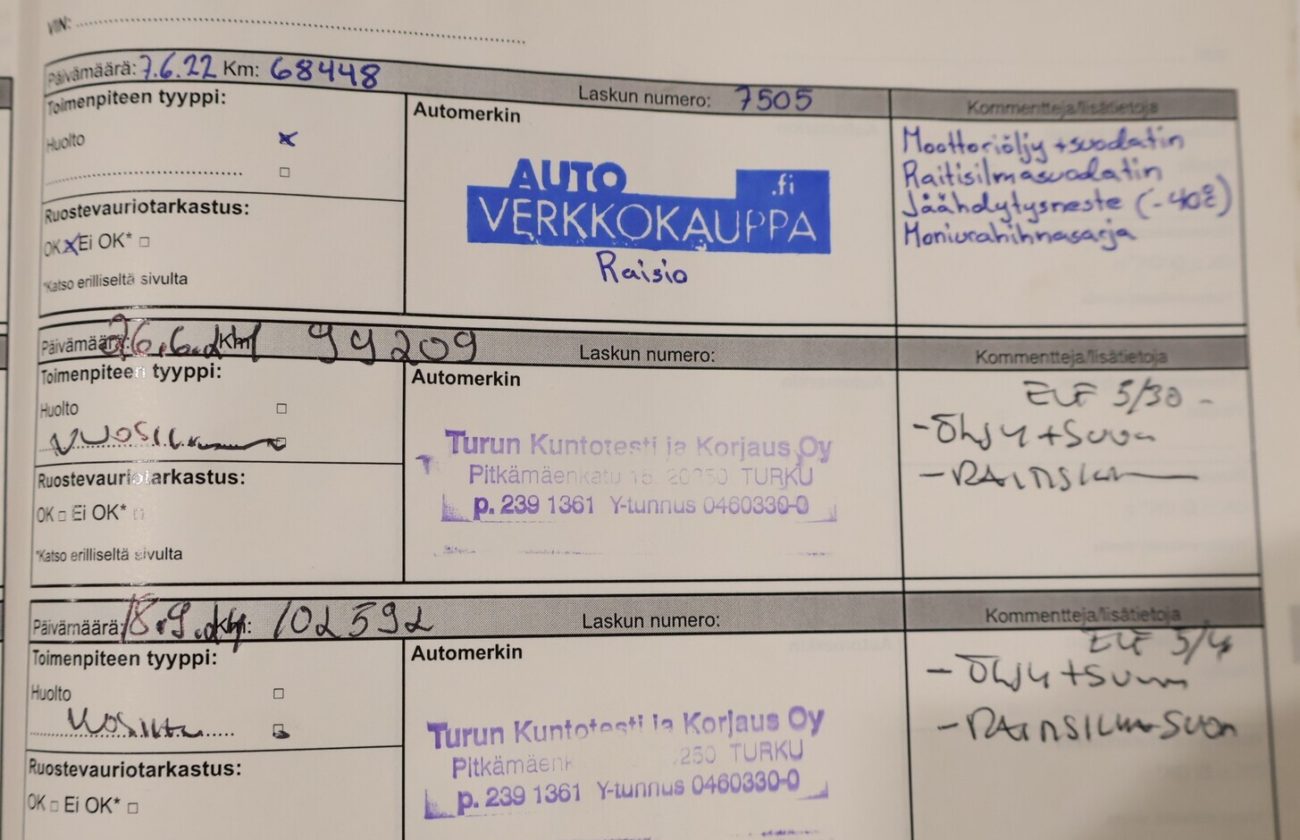 VIN:
Päivämäärä: 7.6.22 Km: 68448 Laskun numero: 7505 Kommentteja/lisätietoja
Toimenpiteen tyyppi:
Huolto
Ruostevauriotarkastus:
OK Ei OK*
*Katso erilliseltä sivulta
Automerkin
AUTO
VERKKOKAUPPA .fi
Raisio
Moottoriöljy + suodatin
Raitisilmasuodatin
Jäähdytysneste (-40°C)
Moniurahihnasarja
Päivämäärä: 26.6. Km 99209 Laskun numero: Kommentteja/lisätietoja
Toimenpiteen tyyppi:
Huolto
Ruostevauriotarkastus:
OK Ei OK*
*Katso erilliseltä sivulta
Automerkin
Turun Kuntotesti ja Korjaus Oy
Pitkämäenkatu 15, 20250 TURKU
p. 239 1361 Y-tunnus 0460330-0
ELF 5/30
Päivämäärä: 18.9. Km: 102592 Laskun numero: Kommentteja/lisätietoja
Toimenpiteen tyyppi:
Huolto
Ruostevauriotarkastus:
OK Ei OK*
Automerkin
Turun Kuntotesti ja Korjaus Oy
Pitkämäenk 250 TURKU
p. 239 1361 Y-tunnus 0460330-0
ELF 5/4